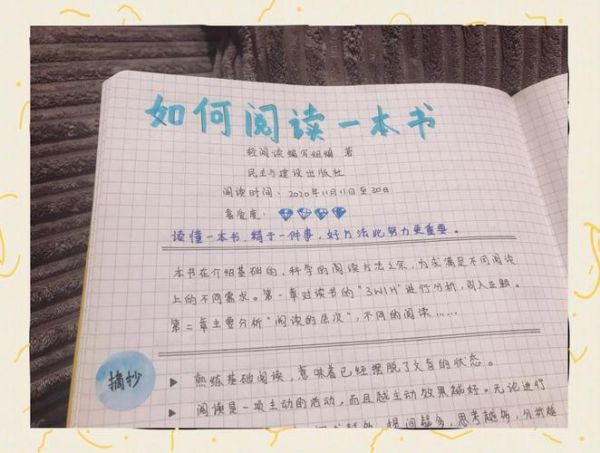 如何阅读一本书
轻阅读编写组编 著
民主与建设出版社
阅读时间：2020年11月11日至30日
喜爱度：
读懂一本书，精于一件事，好方法比努力更重要。
本书在介绍基础的、科学的阅读方法之余，为求满足不同阅读
上的不同需求。第一章对读书的"3W1H"进行分析，引入主题。
第二章主要分析"阅读的层次"，不同的阅读……
摘抄
▶ 熟练基础阅读，意味着已经摆脱了文盲的状态。
▶ 阅读是一项主动的活动，而且越主动效果越好。无论进行
越多，提问越多，思考越多，分析越